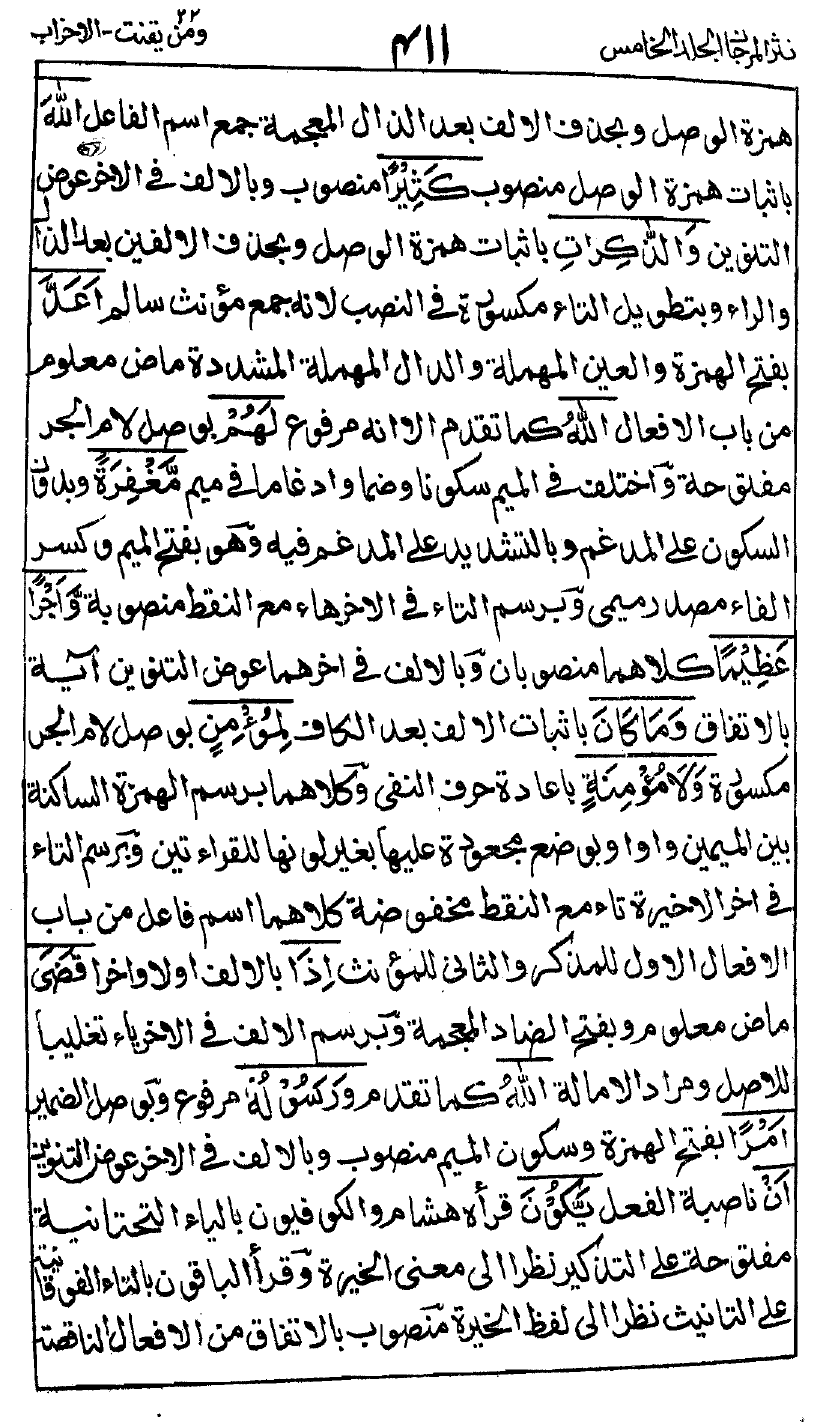 نثر المرجان الجلد الخامس
٤١١
ومن يقنت ٢٢ - الاحزاب
همزة الوصل وبحذف الالف بعد الذال المعجمة جمع اسم الفاعل اللهَ
باثبات همزة الوصل منصوب كَثِيْرًا منصوب وبالالف في الاخر عوض
التنوين وَالذّٰكِرٰتِ باثبات همزة الوصل وبحذف الالفين بعد الذال
والراء وبتطويل التاء مكسورة في النصب لانه جمع مؤنث سالم اَعَدَّ
بفتح الهمزة والعين المهملة والدال المهملة المشددة ماض معلوم
من باب الافعال اللهُ كما تقدم الا انه مرفوع لَهُمْ بوصل لام الجر
مفتوحة واختلف في الميم سكونا وضما وادغاما في ميم مَّغْفِرَةً وبدون
السكون على المدغم وبالتشديد على المدغم فيه وهو بفتح الميم وكسر
الفاء مصدر ميمي وبرسم التاء في الاخر هاء مع النقط منصوبة وَّاَجْرًا
عَظِيْمًا كلاهما منصوبان وبالالف في اخرهما عوض التنوين آية
بالاتفاق وَمَا كَانَ باثبات الالف بعد الكاف لِمُؤْمِنٍ بوصل لام الجر
مكسورة وَلَا مُؤْمِنَةٍ باعادة حرف النفي وكلاهما برسم الهمزة الساكنة
بين الميمين واوا وبوضع مجعودة عليها بغير لونها للقراءتين وبرسم التاء
في اخر الاخيرة تاء مع النقط مخفوضة كلاهما اسم فاعل من باب
الافعال الاول للمذكر والثاني للمؤنث اِذَا بالالف اولا واخرا قَضَى
ماض معلوم وبفتح الضاد المعجمة وبرسم الالف في الاخر ياء تغليبا
للاصل ومراد الامالة اللهُ كما تقدم وَرَسُوْلُهٗ مرفوع وبوصل الضمير
اَمْرًا بفتح الهمزة وسكون الميم منصوب وبالالف في الاخر عوض التنوين
اَنْ ناصبة الفعل يَّكُوْنَ قرأه هشام والكوفيون بالياء التحتانية
مفتوحة على التذكير نظرا الى معنى الخيرة وقرأ الباقون بالتاء الفوقانية
على التانيث نظرا الى لفظ الخيرة منصوب بالاتفاق من الافعال الناقصة